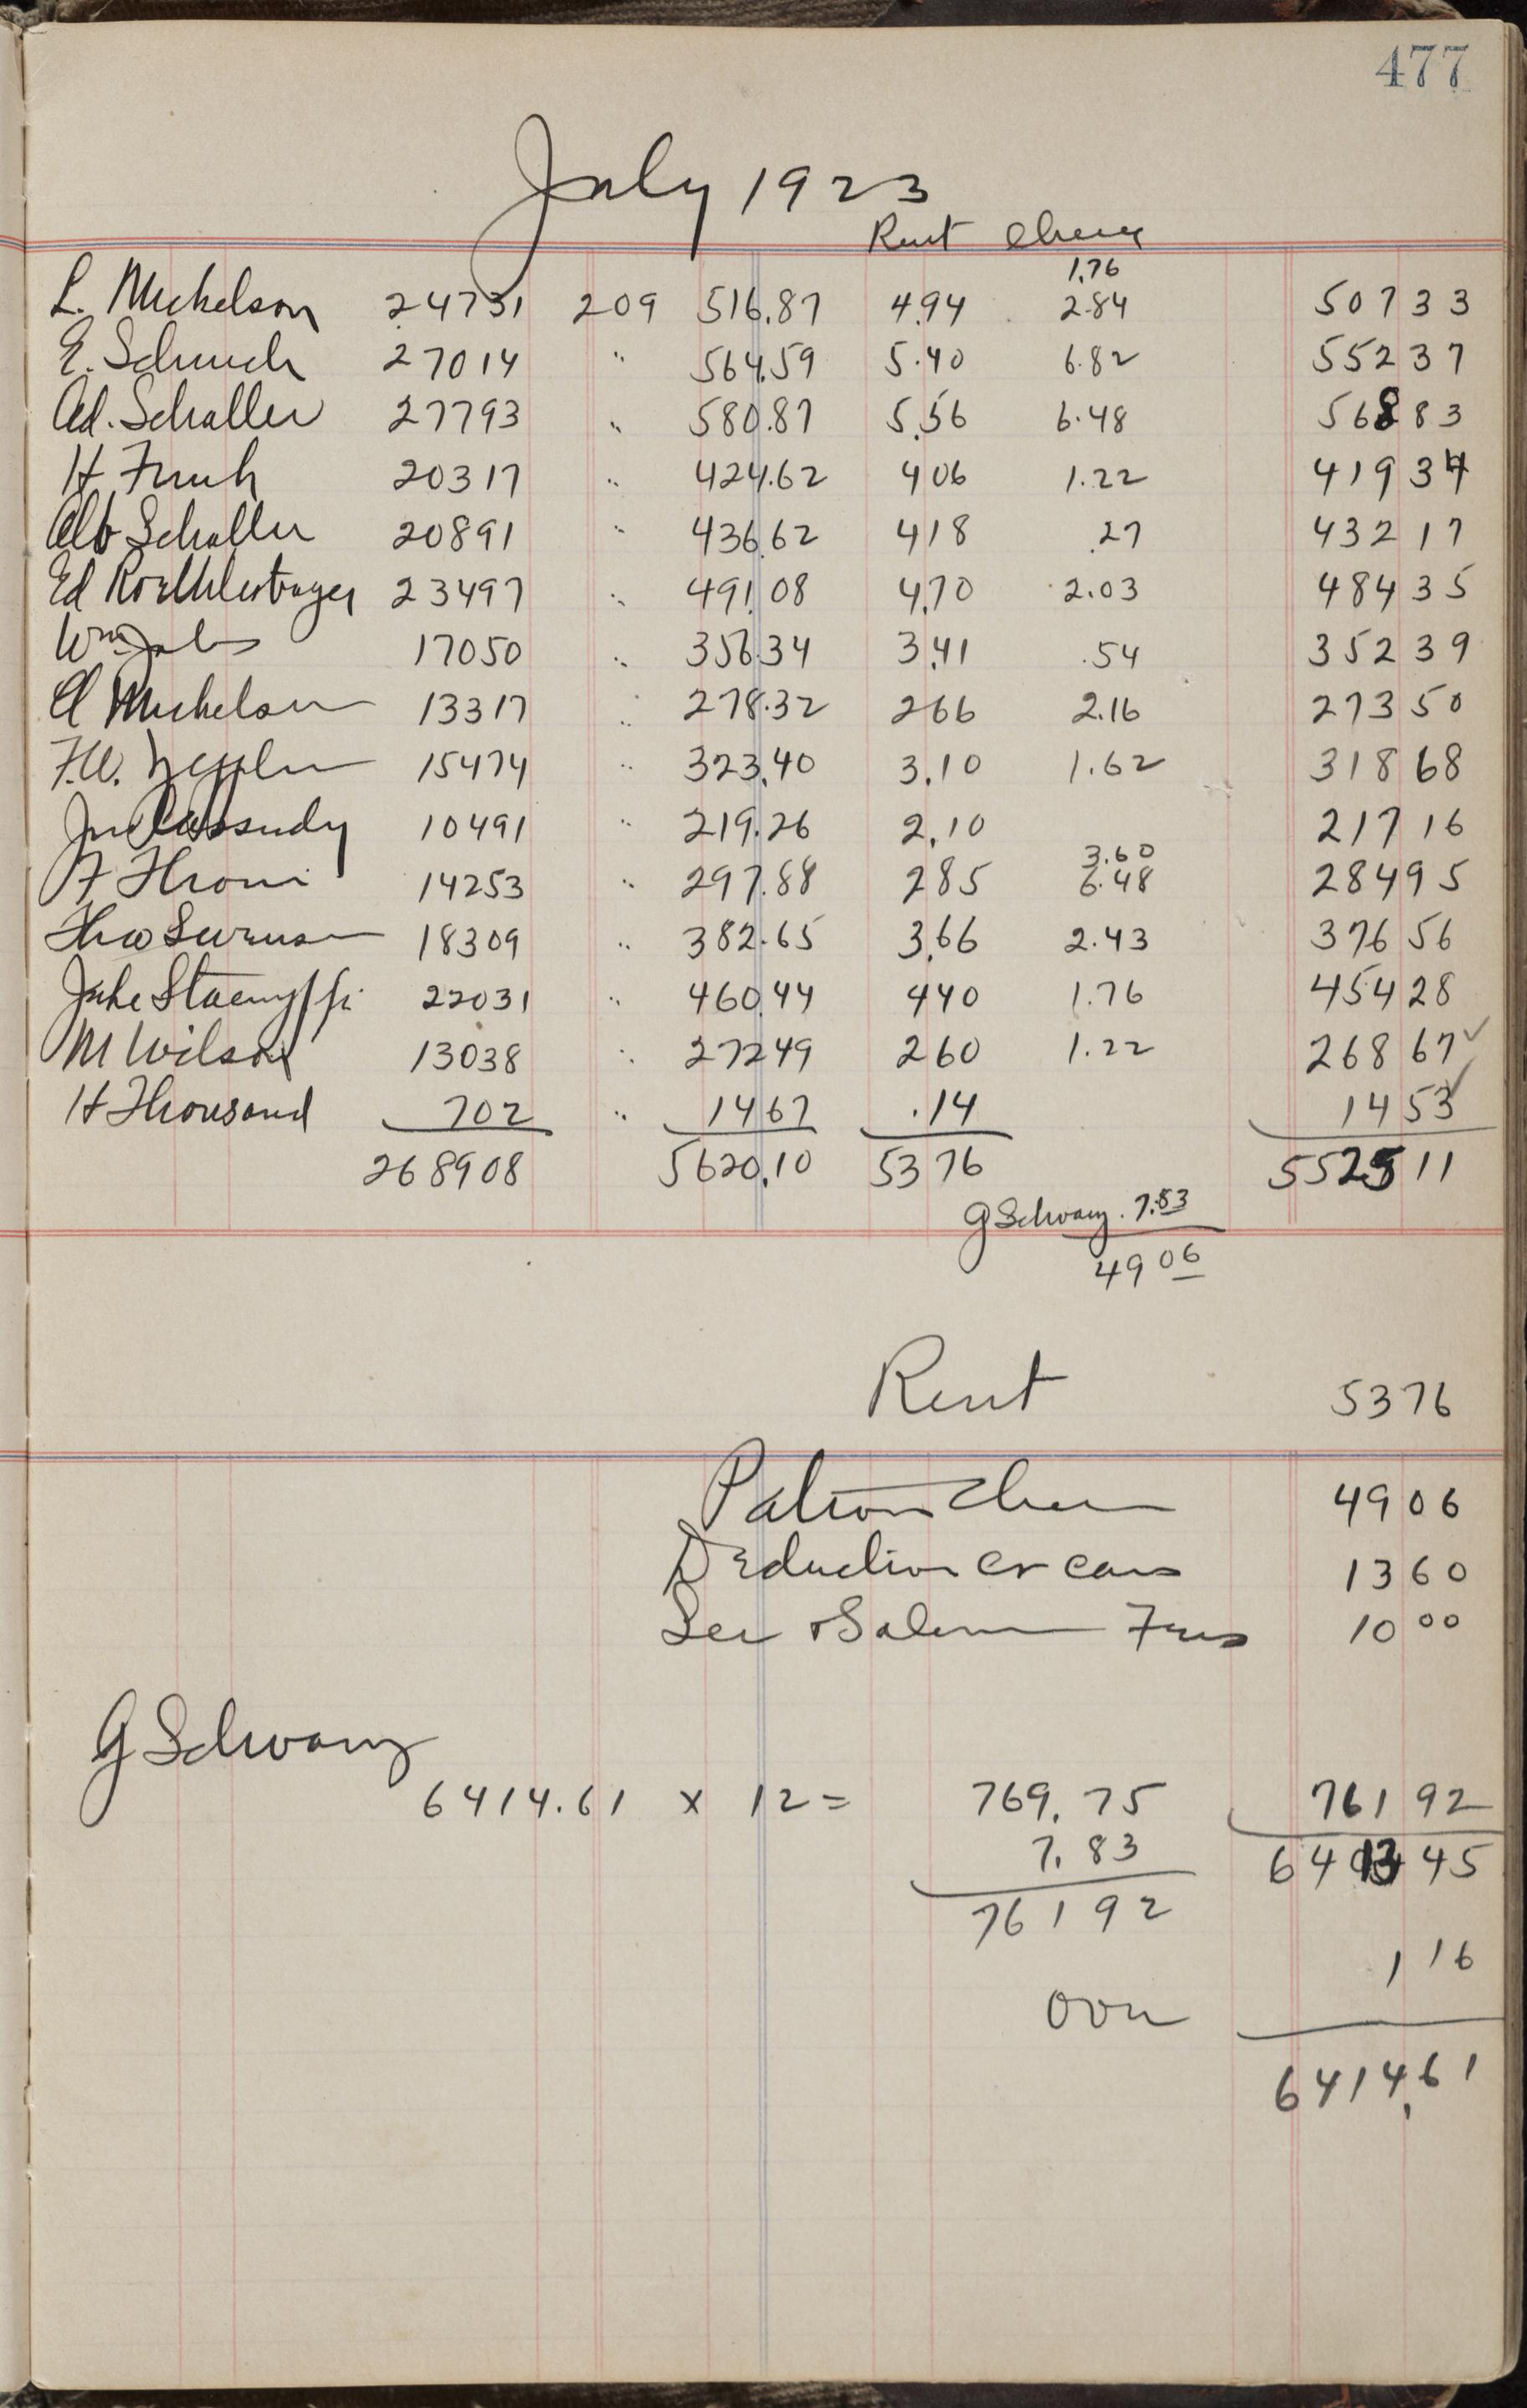 477
July 1923
Rent Cheese
1.76
L. Michelson 24731 209 516.87 4.94 2.84 507 33
E. Schuch 27014 " 564.59 5.40 6.82 552 37
Ad. Schaller 27793 " 580.87 5.56 6.48 568 83
H 20317 " 424.62 4 06 1.22 419 34
Alb Schaller 20891 " 436.62 4 18 .27 432 17
Ed 23497 " 491.08 4.70 2.03 484 35
Wm 17050 " 356.34 3.41 .54 352 39
A Michelson 13317 " 278.32 2 66 2.16 273 50
F.W. 15474 " 323.40 3.10 1.62 318 68
Jno Cassudy 10491 " 219.26 2.10 217 16
3.60
F 14253 " 297.88 2 85 6.48 284 95
Theo 18309 " 382.65 3.66 2.43 376 56
Jake 22031 " 460.44 4 40 1.76 454 28
M Wilson 13038 " 272 49 2 60 1.22 268 67 ✓
H Thousand 702 " 14 67 .14 14 53 ✓
268908 5620.10 53 76 5525 11
G Schwarz. 7.83
49 06
Rent 53 76
Patrons Cheese 49 06
Deduction cr cans 13 60
Sec & Salesm Fees 10 00
G Schwarz
6414.61 x 12 = 769.75 761 92
7.83 6413 45
761 92
1 16
over
6414.61